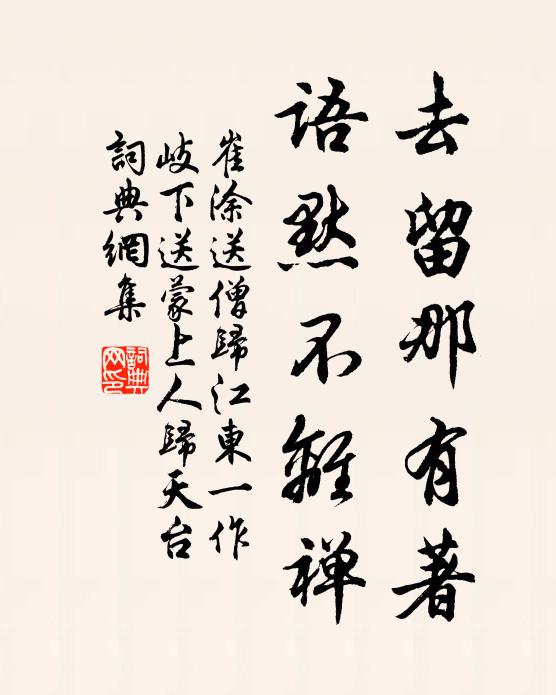 去留那有著
語默不離禅
崔涂送僧歸江東一作
岐下送蒙上人歸天台
詞典網集
詞典
网印